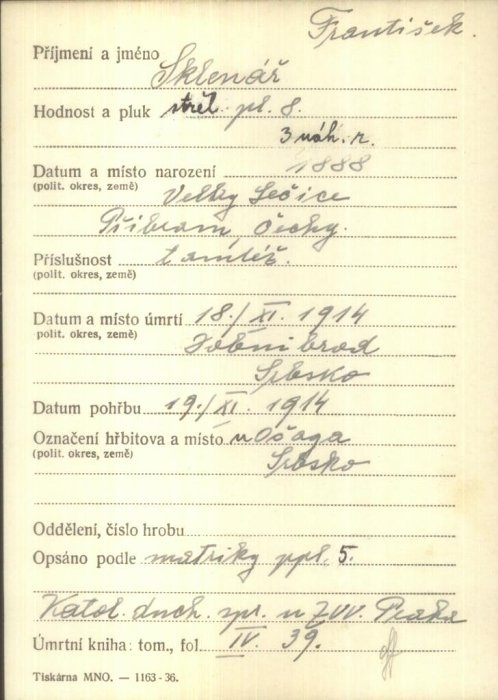 František.
Příjmení a jméno Sklenář
Hodnost a pluk střel. pl. 8.
3 náh. r.
Datum a místo narození 1888
(polit. okres, země) Velky Lečice
Příbram, Čechy.
Příslušnost tamtéž.
(polit. okres, země)
Datum a místo úmrtí 18./XI. 1914
polit. okres, země) brod
Srbsko
Datum pohřbu 19./XI. 1914
Označení hřbitova a místo u Ošaga
(polit. okres, země) Srbsko
Oddělení, číslo hrobu
Opsáno podle matriky ppl. 5.
Katol. duch. spr. u ZVV. Praha
Úmrtní kniha: tom., fol. IV. 39.
Tiskárna MNO. — 1163-36.